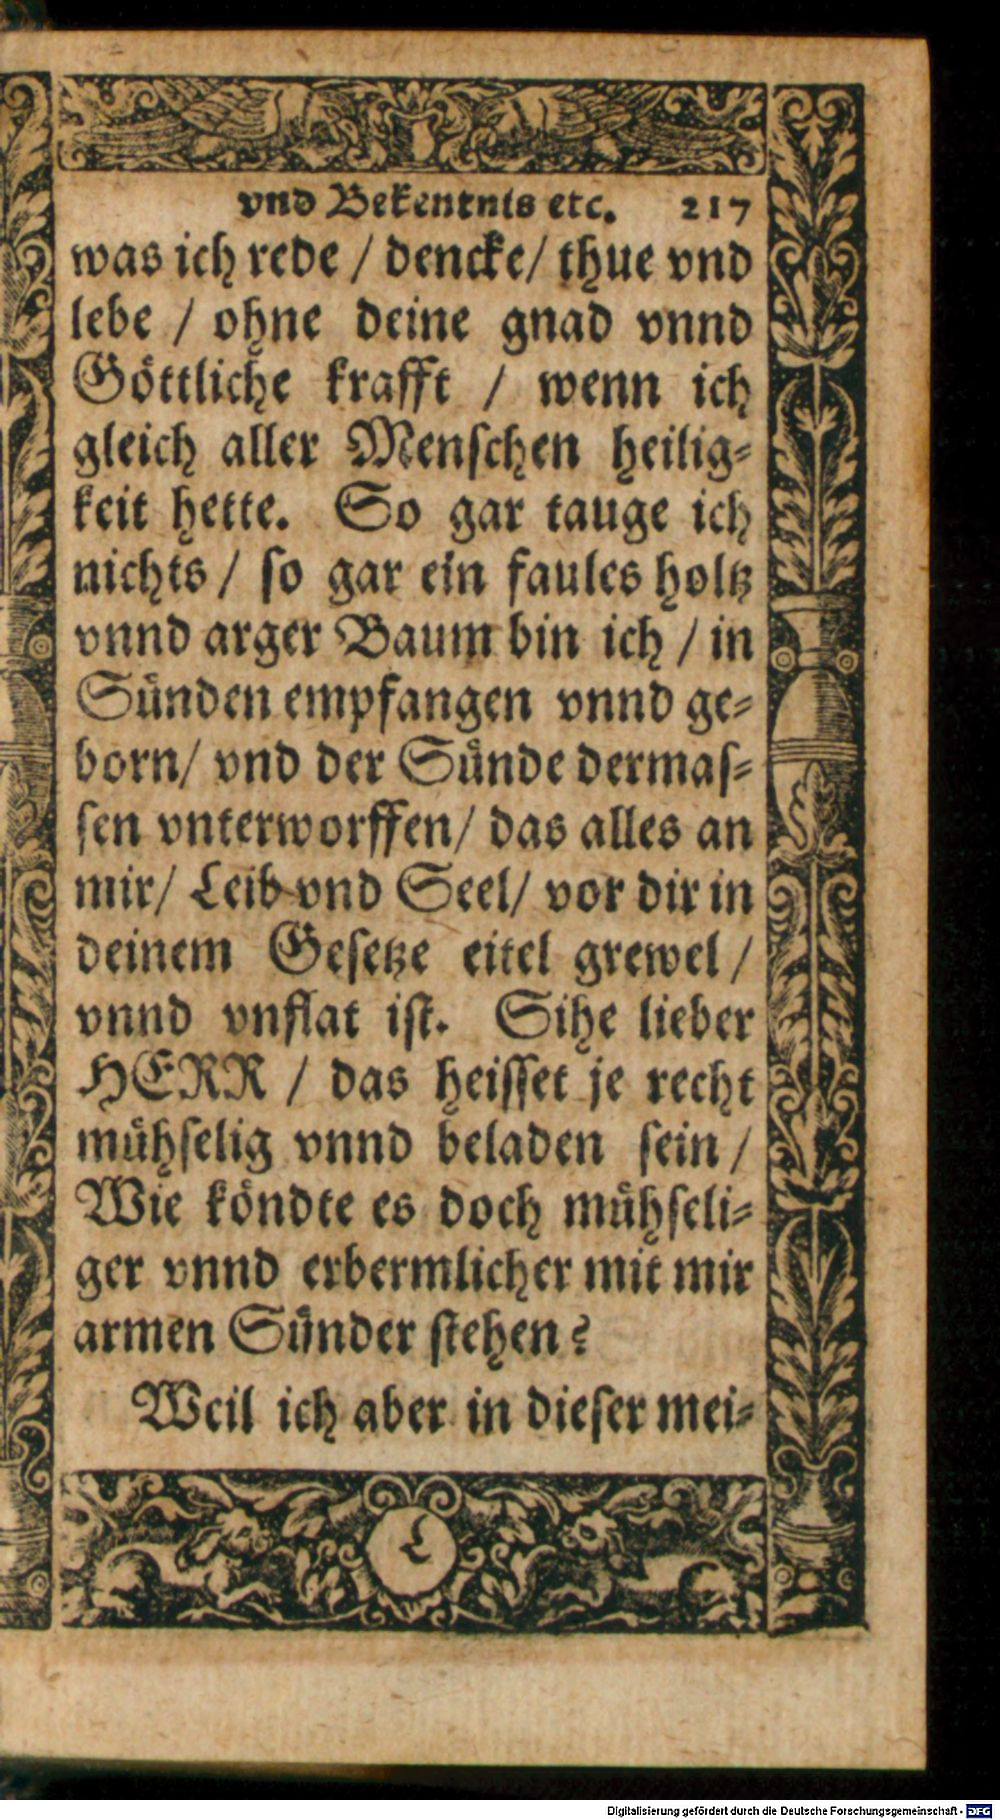 vnd Bekentnis etc. 217
was ich rede / dencke / thue vnd
lebe / ohne deine gnad vnnd
Göttliche krafft / wenn ich
gleich aller Menschen heilig-
keit hette. So gar tauge ich
nichts / so gar ein faules holtz
vnnd arger Baum bin ich / in
Sünden empfangen vnnd ge-
born / vnd der Sünde dermas-
sen vnterworffen / das alles an
mir / Leib vnd Seel / vor dir in
deinem Gesetze eitel grewel /
vnnd vnflat ist. Sihe lieber
HERR / das heisset je recht
mühselig vnnd beladen sein /
Wie köndte es doch mühseli-
ger vnnd erbermlicher mit mir
armen Sünder stehen?
Weil ich aber in dieser mei-
L
Digitalisierung gefördert durch die Deutsche Forschungsgemeinschaft - DFG